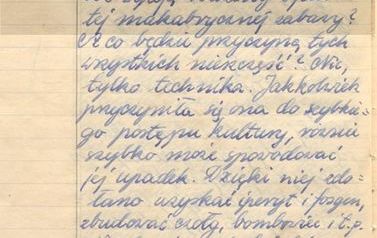 tej makabrycznej zabawy?
A co będzie przyczyną tych
wszystkich nieszczęść? Nic,
tylko technika. Jakkolwiek
przyczyniła się ona do szybkie-
go postępu kultury, równie
szybko może spowodować
jej upadek. Dzięki niej zdo-
łano uzyskać iperyt i fosgen,
zbudować czołg, bombowiec i t.p.